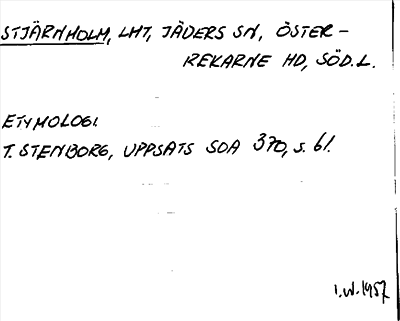 STJÄRNHOLM, LHT, JÄDERS SN, ÖSTER-
REKARNE HD, SÖD.L.
ETYMOLOGI.
T. STENBORG, UPPSATS SOA 370, s. 61.
I.W. 1957